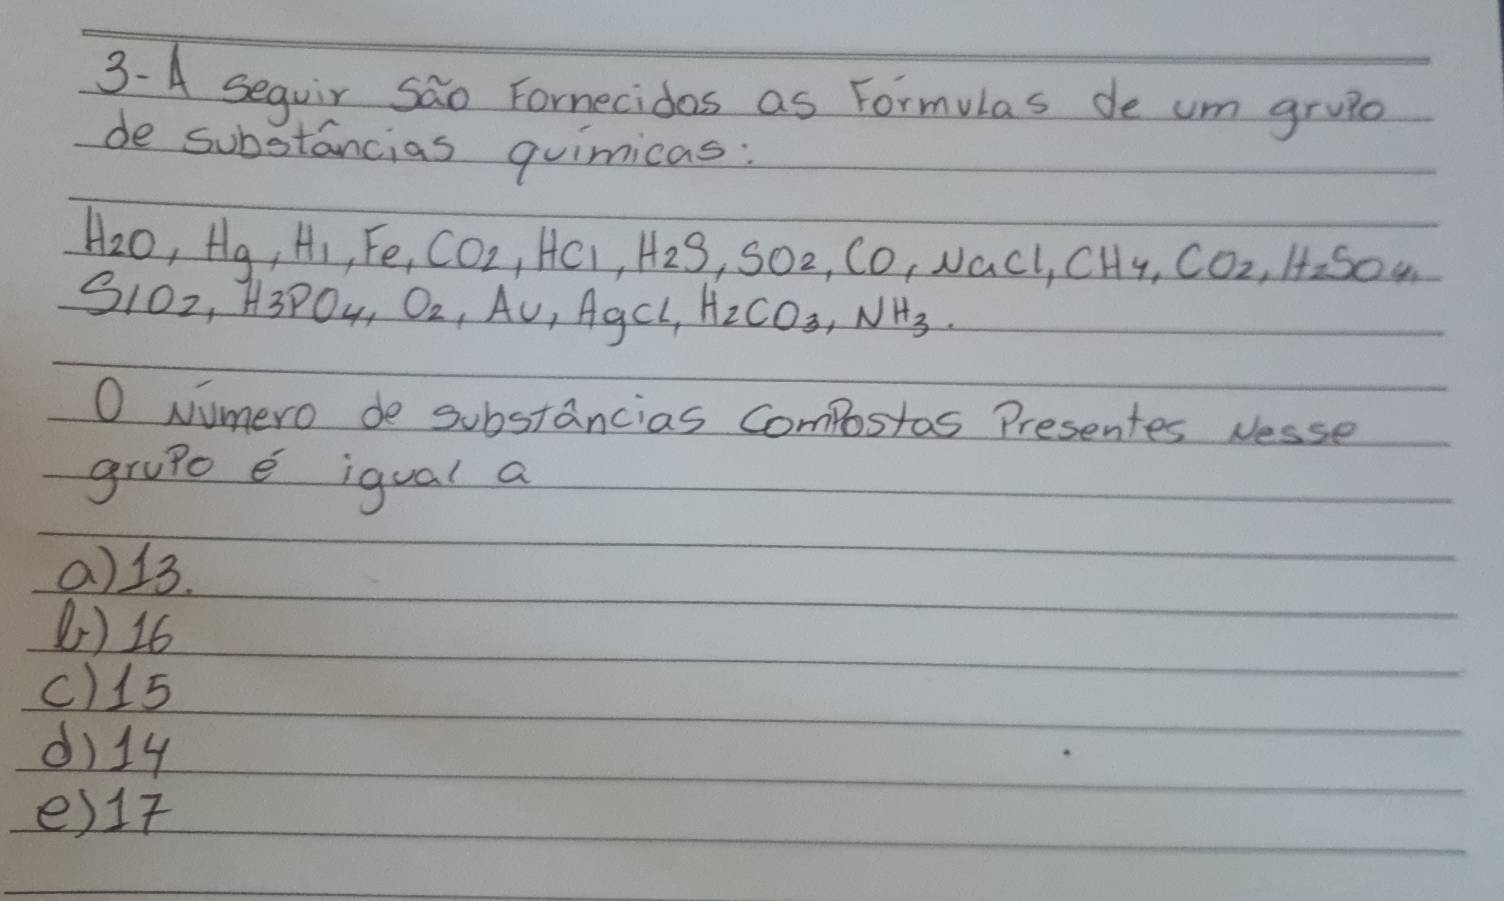 3-A seguir são Fornecidos as Fórmulas de um grupo
de substâncias químicas:
H2O, Hg, H1, Fe, CO2, HCl, H2S, SO2, CO, NaCl, CH4, CO2, H2SO4,
SiO2, H3PO4, O2, Au, AgCl, H2CO3, NH3.
O Número de substâncias Compostas Presentes Nesse
grupo é igual a
a) 13.
b) 16
c) 15
d) 14
e) 17